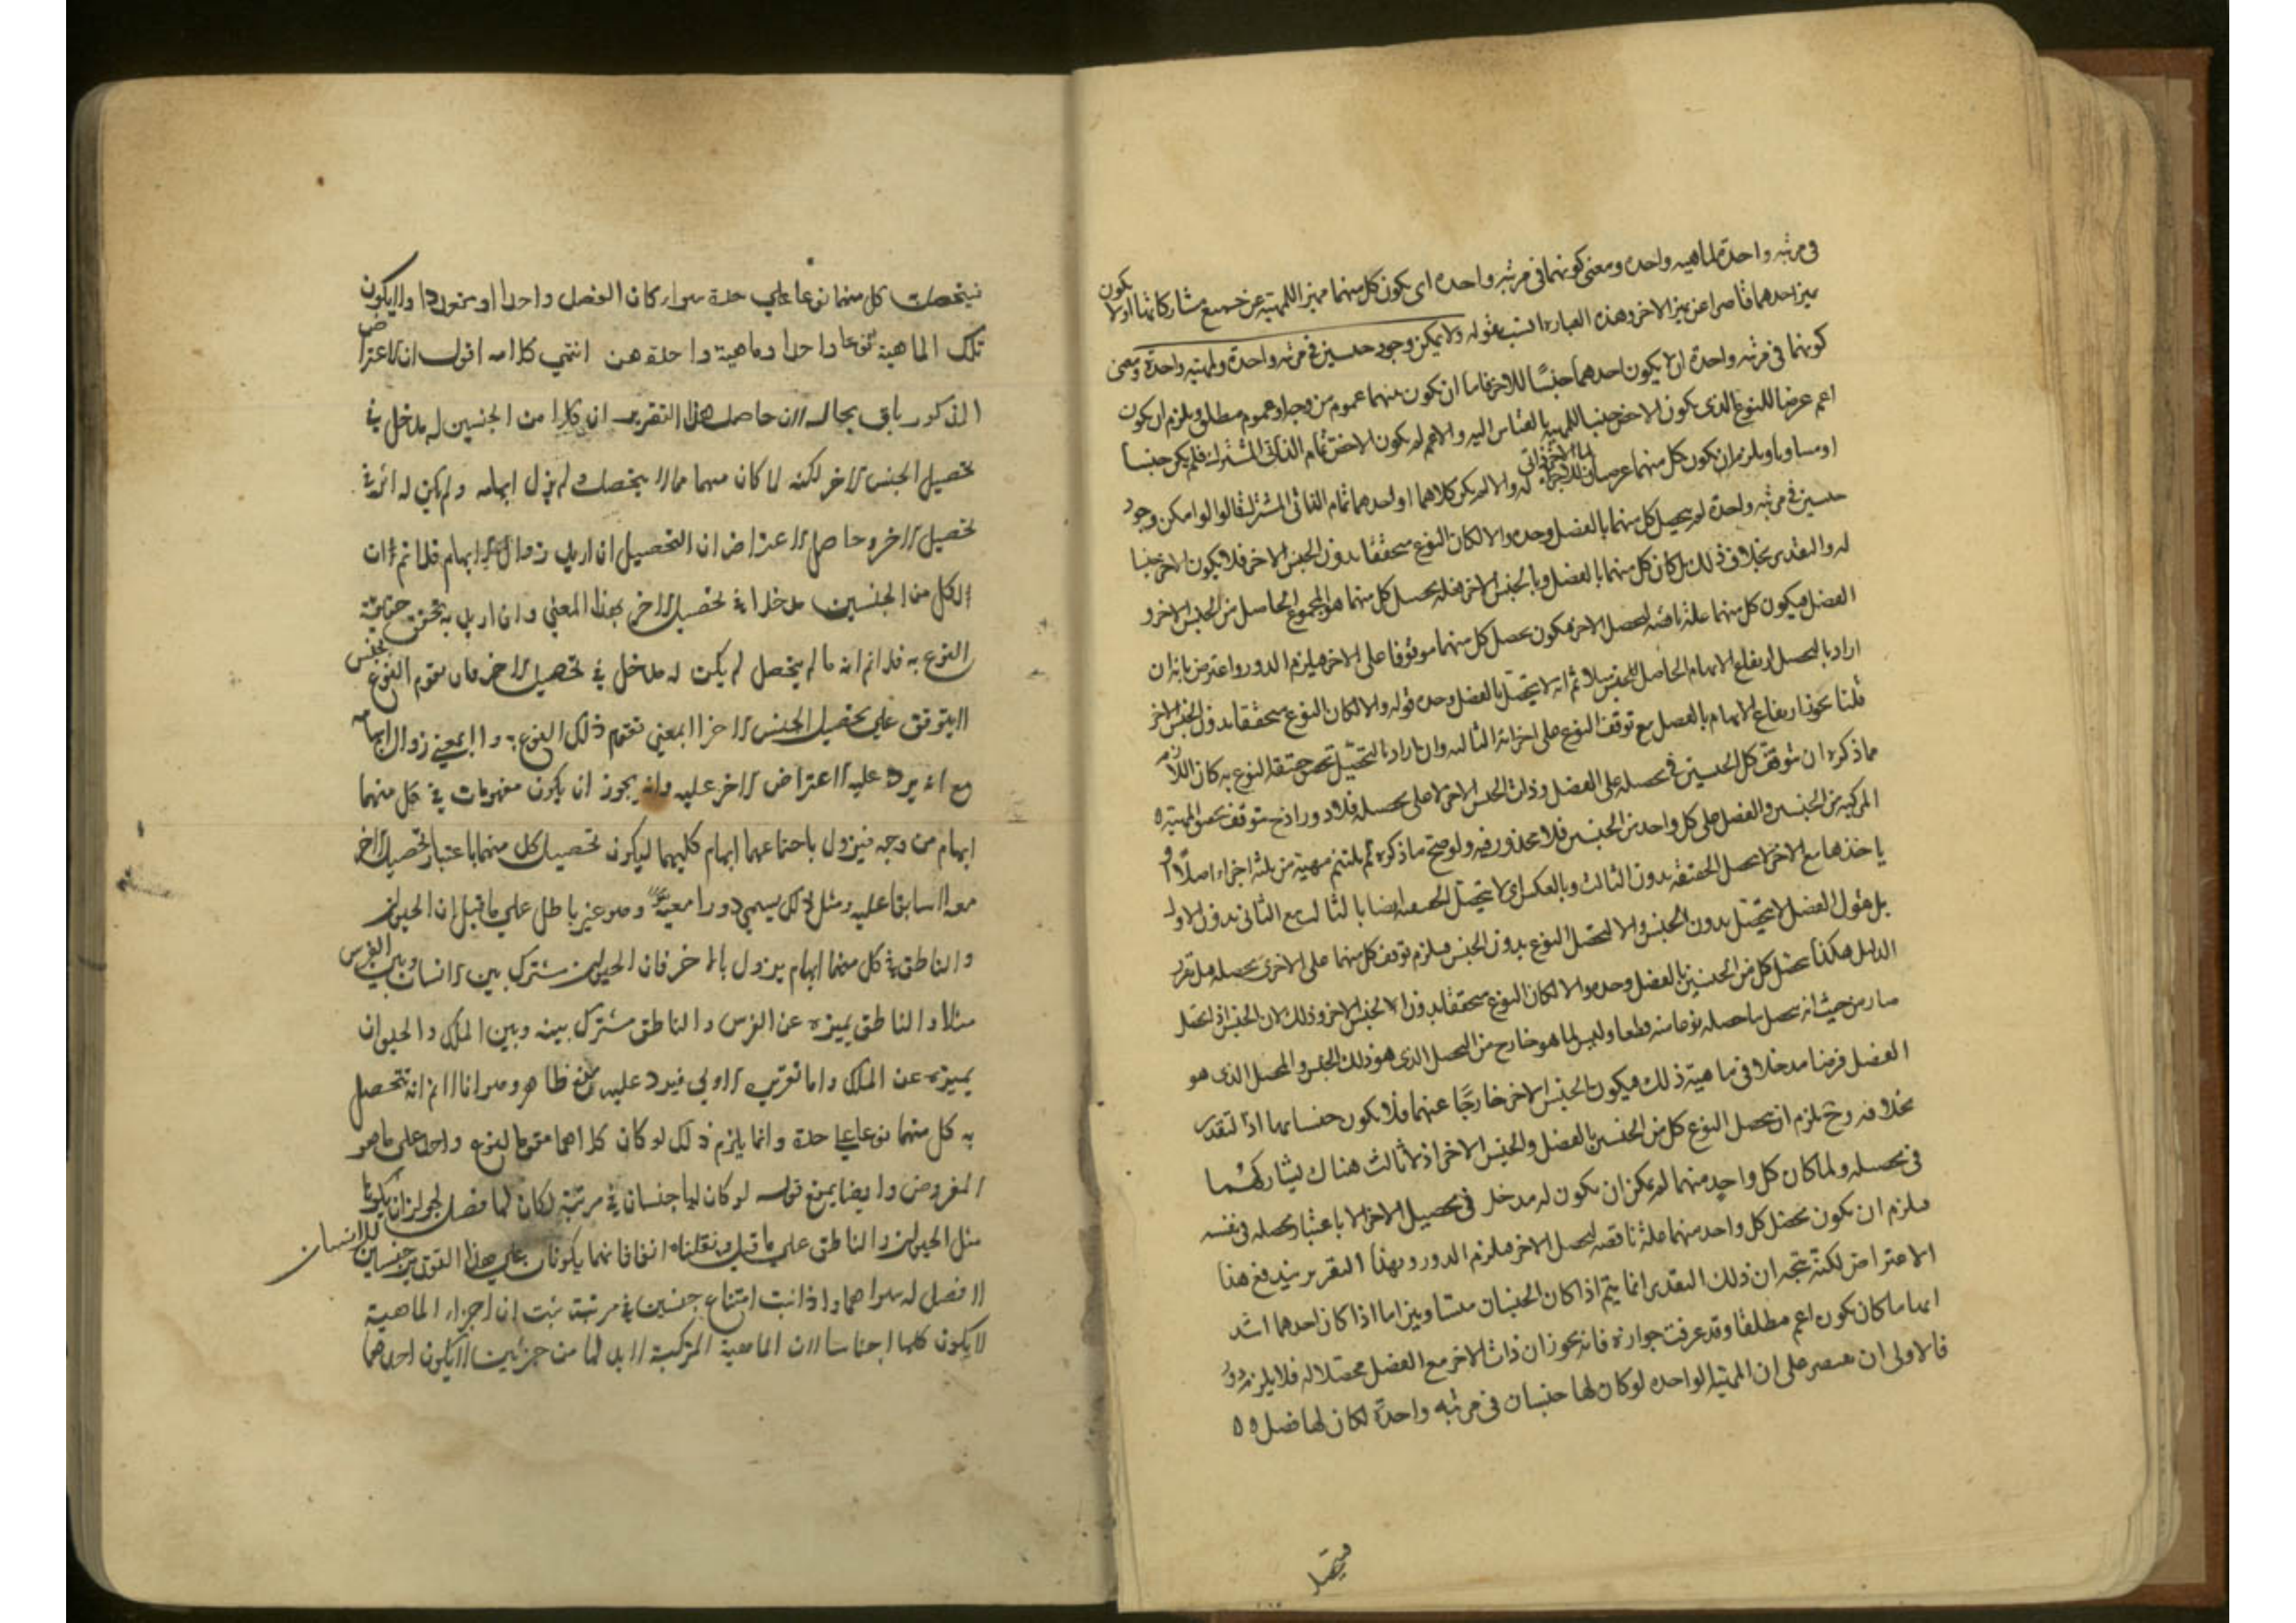 في مرتبه واحدة لماهيه واحده ومعنى كونهما في مرتبه واحده اى يكون كل منهما مميزا للمهية عن جميع مشاركاتها اولا يكون
ميز احدهما قاصرا عن ميز الاخر وهذه العبارة انسب بقوله ولا يمكن وجود جنسين في مرتبه واحدة ولمهيه واحدة ومعنى
كونهما في مرتبه واحدة ان لا يكون احدهما جنسًا للاخر فاما ان يكون بينهما عموم من وجه او عموم مطلق ويلزم ان يكون
اعم عرضا للنوع الذى يكون الاخص جنسا للمهية بالقياس اليه والا لم يكون الاخص تمام الذاتي المشترك فلم يكن جنسا
او مساويا ويلزم ان يكون كل منهما عرضيا له والا لم يكن كلاهما او احدهما تمام الذاتي المشترك قالوا لو امكن وجود
جنسين في مرتبه واحدة لم يتحصل كل منهما بالفصل وحده والا لكان النوع متحققا بدون الجنس الاخر فلا يكون الاخر جنسا
له والتقدير بخلاف ذلك بل كان كل منهما بالفصل وبالجنس الاخر فعله تحصل كل منهما هو المجموع الحاصل من الجنس الاخر و
الفصل فيكون كل منهما علة ناقصه لتحصل الاخر فيكون تحصل كل منهما موقوفا على الاخر فيلزم الدور واعترض بانه ان
اراد بالتحصل ارتفاع الابهام الحاصل للجنس فلا ثم انه لا يتحصل بالفصل وحده قوله والا لكان النوع متحققا بدون الجنس الاخر
قلنا يجوز ارتفاع الابهام بالفصل مع توقف النوع على اجزائه الثالثه وان اراد بالتحصل تحقق حقيقة النوع به كان اللازم
مما ذكره ان توقف كل الجنسين في تحصله على الفصل وذات الجنس الاخر لا على تحصله فلا دور اذ ح توقف تحصل المهية
المركبه من الجنسين والفصل على كل واحد من الجنسين فلا محذور فيه ولو صح ما ذكره لم يلتئم مهية من ثلثة اجزاء اصلاً و
ياخذها مع الاخر لا تحصل الحقيقه بدون الثالث وبالعكس اى لا يتحصل الحقيقه ايضا بالثالث مع الثانى بدون الاول
بل نقول الفصل لا يتحصل بدون الجنس والا لتحصل النوع بدون الجنس فيلزم توقف كل منهما على الاخر في تحصله قيل تقرير
الدليل هكذا تحصل كل من الجنسين بالفصل وحده والا لكان النوع متحققا بدون الجنس الاخر وذلك لان الجنس اذا تحصل
صار من حيث انه تحصل بما حصله نوعا منه قطعا وليس لما هو خارج من التحصل الذى هو ذلك الجنس والمحصل الذى هو
الفصل فرضنا مدخلا في ماهية ذلك فيكون الجنس الاخر خارجًا عنهما فلا يكون جنسا لهما اذ التقدير
بخلافه و ح يلزم ان يحصل النوع كل من الجنسين بالفصل والجنس الاخر اذ لا ثالث هناك ليشاركهما
في تحصله ولما كان كل واحد منهما لم يمكن ان يكون له مدخل في تحصيل الاخر الا باعتبار تحصله في نفسه
فيلزم ان يكون تحصل كل واحد منهما علة ناقصه لتحصل الاخر فيلزم الدور وبهذا التقرير يندفع هذا
الاعتراض لكنه يتجه ان ذلك التقدير انما يتم اذا كان الجنسان متساويين اما اذا كان احدهما اشد
ابهاما كان يكون اعم مطلقا وقد عرفت جوازه فانه يجوز ان ذات الاخر مع الفصل محصلا له فلا يلزم دور
فالاولى ان يقتصر على ان المهية الواحده لو كان لها جنسان في مرتبه واحدة لكان لها فصل
فيتحصل
فيتحصلت كل منهما نوعا علي حدة سواء كان الفصل واحدا او متعددا والا يكون
تلك الماهية نوعا واحدا وماهية واحدة هف انتهي كلامه اقول ان الاعتراض
المذكور باق بحاله لان حاصل هذا التقرير ان كلا من الجنسين له مدخل في
تحصيل الجنس الاخر لكنه لا كان مبهما مما لا يتحصل لم يزل ابهامه ولم يكن له اثر في
تحصيل الاخر وحاصل الاعتراض ان التحصيل ان اريد زوال الابهام فلا نم ان
لكل من الجنسين مدخلا في تحصيل الاخر بهذا المعني وان اريد به تحقق حقيقة
النوع به فلا نم انه ما لم يتحصل لم يكن له مدخل في تحصيل الاخر فان تقوم النوع بجنس
لا يتوقف علي تحصيل الجنس الاخر لا بمعني تقوم ذلك النوع به ولا بمعني زوال ابهامه
مع انه يرد عليه الاعتراض الاخر عليه وانه يجوز ان يكون مفهومات في كل منهما
ابهام من وجه فيزول باجتماعهما ابهام كليهما ليكون تحصيل كل منهما باعتبار تحصيل الاخر
معه لا سابقا عليه ومثل ذلك يسمي دورا معية وهو غير باطل علي ما قيل ان الحيوان
والناطق في كل منهما ابهام يزول بالاخر فان الحيوان مشترك بين الانسان وبين الفرس
مثلا والناطق يميزه عن الفرس والناطق مشترك بينه وبين الملك والحيوان
يميزه عن الملك واما تقريب الاولي فيرد عليه منع ظاهر وهو انا لا نم انه يتحصل
به كل منهما نوعا علي حدة وانما يلزم ذلك لو كان كلاهما مقوما لنوع واحد علي ما هو
المفروض وايضا يمنع قوله لو كان لها جنسان في مرتبة لكان لها فصل لجواز ان يكونا
مثل الحيوان والناطق علي ما قيل ونقلناه انفا فانهما يكونان علي هذا القول جنسين للانسان
لا فصل له سواهما واذا ثبت امتناع جنسين في مرتبة ثبت ان اجزاء الماهية
لا يكون كلها اجناسا لان الماهية المركبة لا بد لها من جزئين لا يكون احدهما